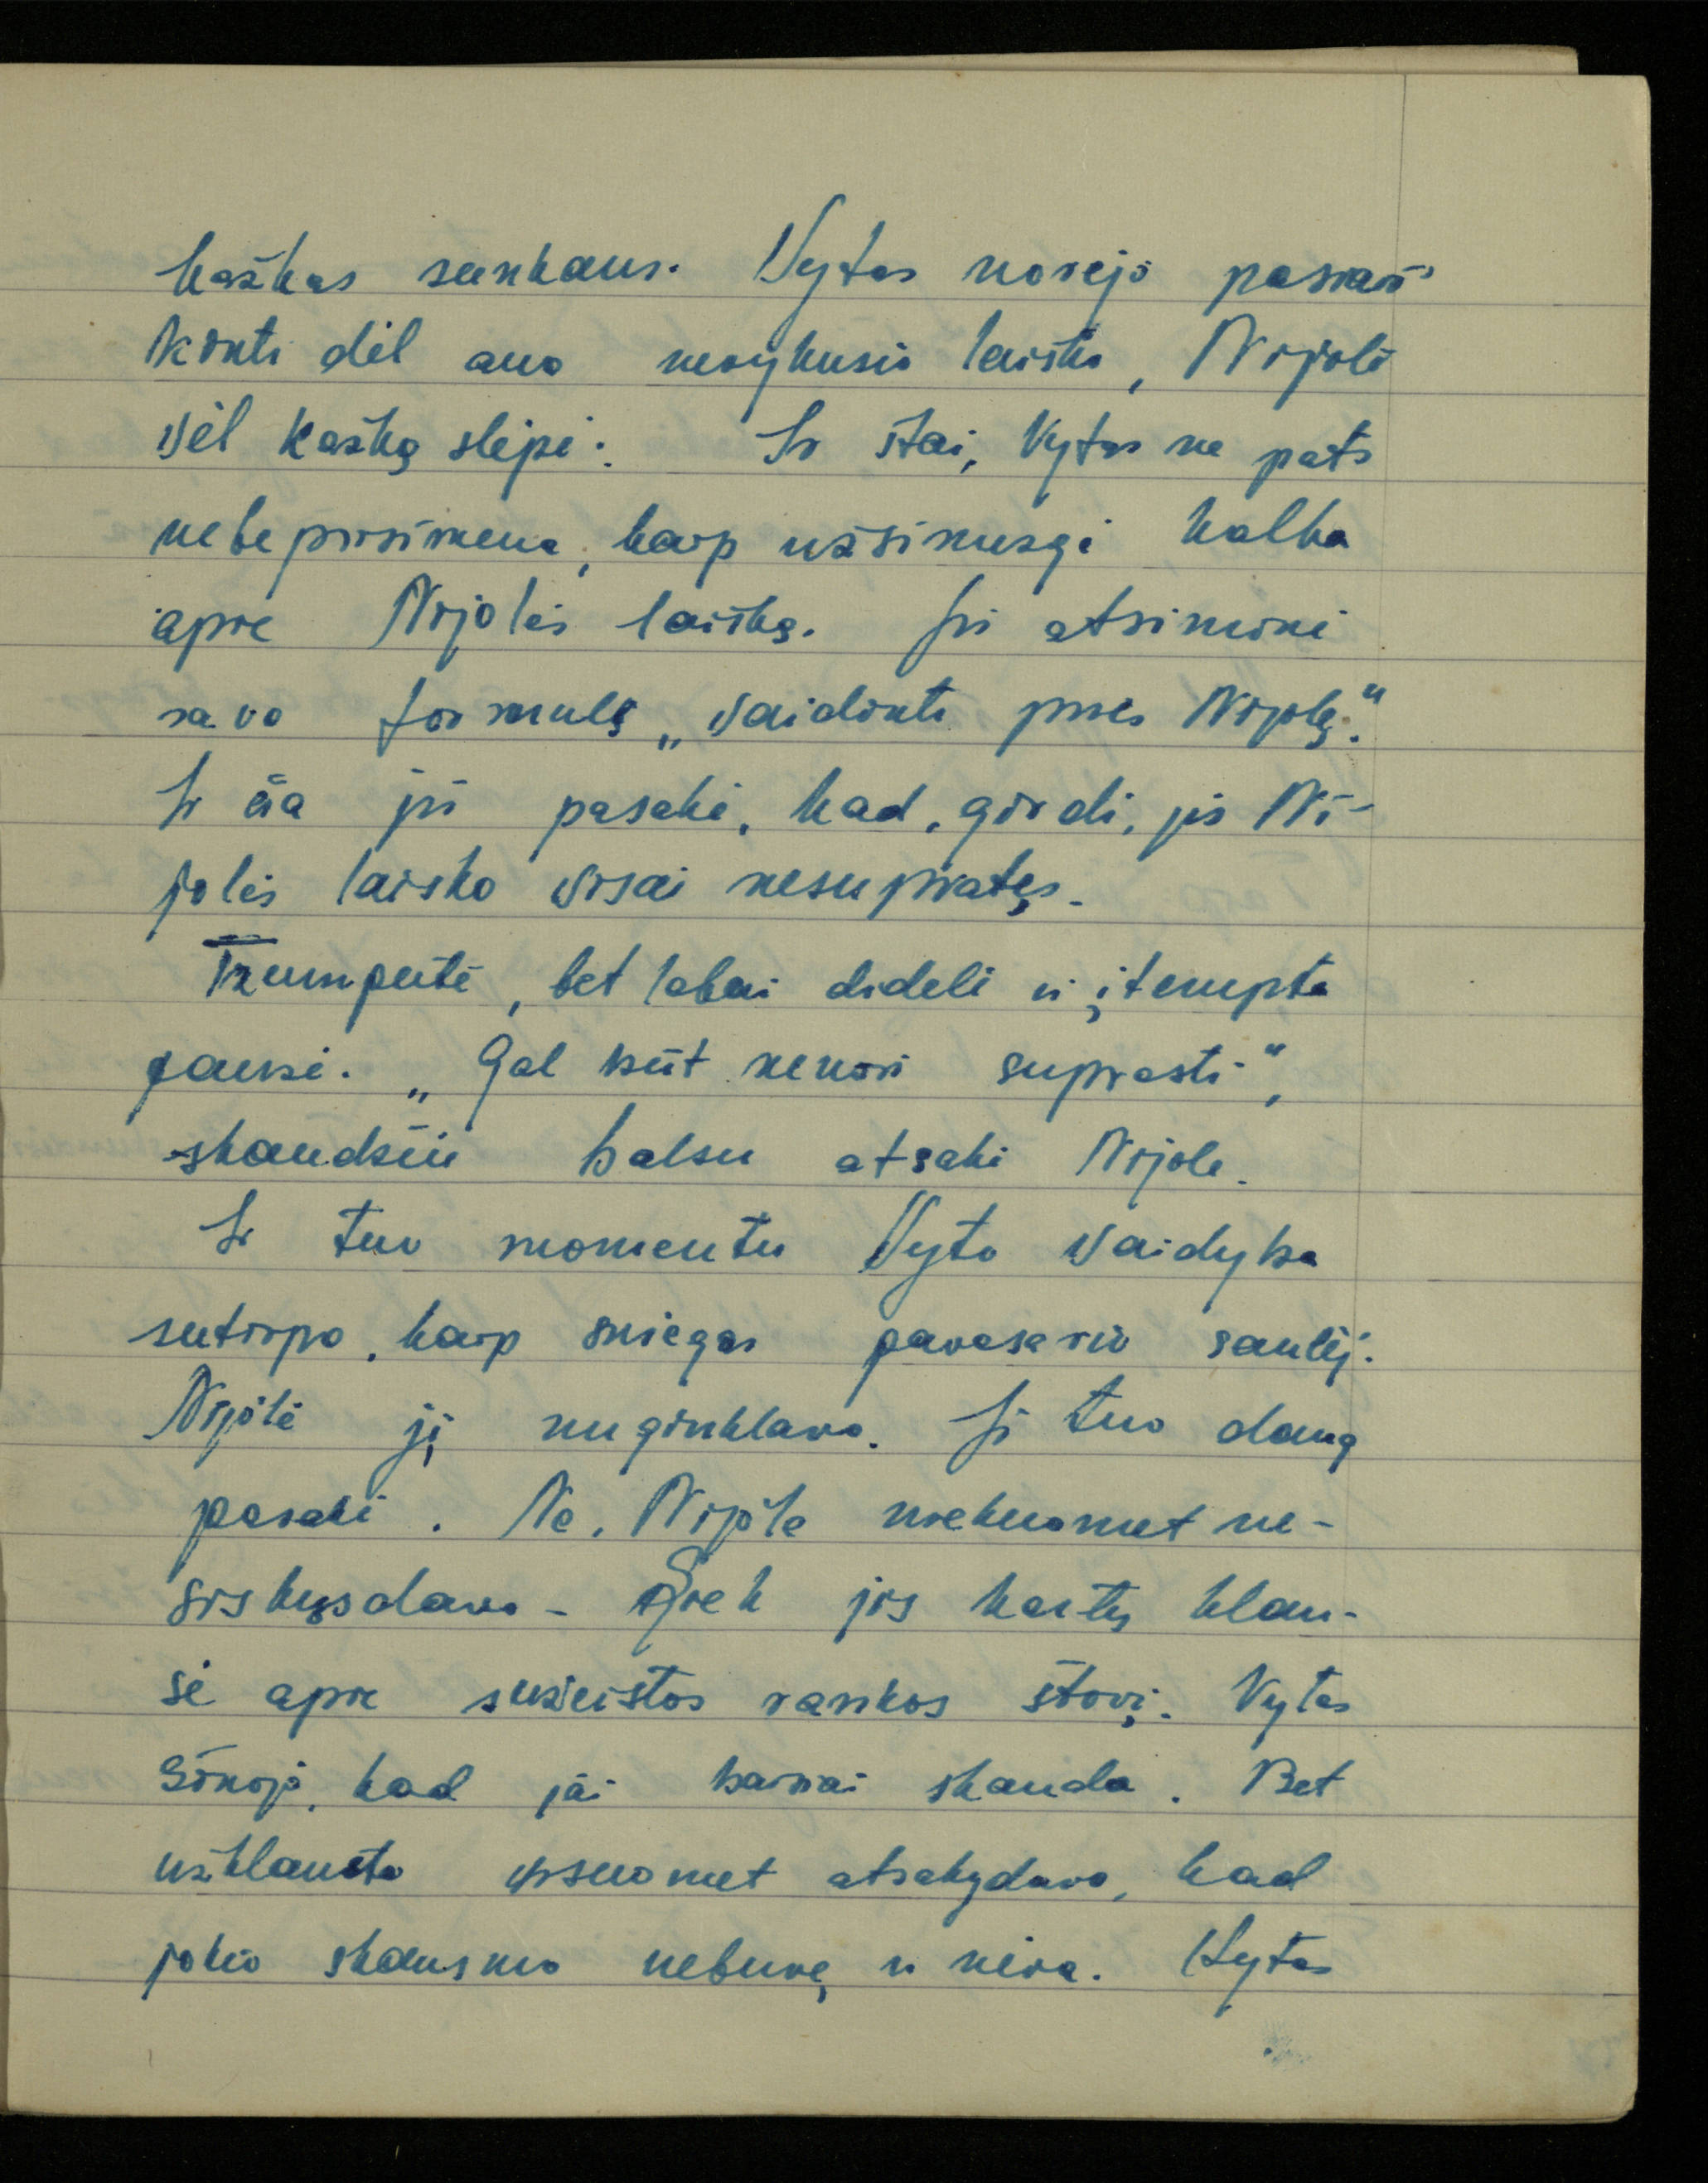 kažkas sunkaus. Vytas norėjo pasiaiš-
kinti dėl ano nevykusio laiško, Nijolė
vėl kažką slėpė. Ir štai, Vytas nė pats
nebeprisimena, kaip užsimezgė kalba
apie Nijolės laišką. Jis atsiminė
savo formulę „vaidinti prieš Nijolę".
Ir čia jis pasakė, kad, girdi, jis Ni-
jolės laiško visai nesupratęs.
Trumputė, bet labai didelė ir įtempta
pauzė. „Gal būt nenori suprasti",
skaudžiu balsu atsakė Nijolė.
Ir tuo momentu Vyto vaidyba
sutirpo, kaip sniegas pavasario saulėj.
Nijolė jį nuginklavo. Ji tuo daug
pasakė. Ne, Nijolė niekuomet ne-
siskųsdavo. Kiek jis kartų klau-
sė apie sužeistos rankos stovį. Vytas
žinojo, kad jai baisiai skauda. Bet
užklausta visuomet atsakydavo, kad
jokio skausmo nebuvę ir nėra. Vytas